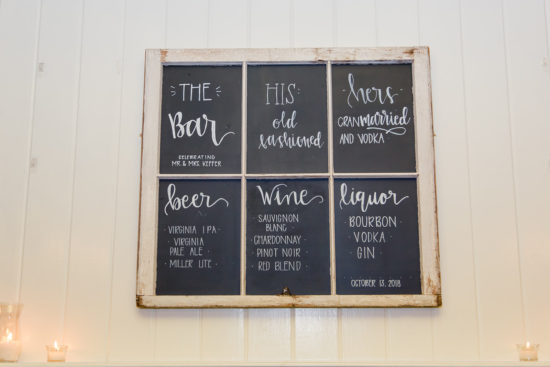 THE
Bar
CELEBRATING
MR. & MRS. KEFFER
HIS
old
fashioned
hers
CRANMARRIED
AND VODKA
beer
VIRGINIA IPA
VIRGINIA
PALE ALE
MILLER LITE
Wine
SAUVIGNON
BLANC
CHARDONNAY
PINOT NOIR
RED BLEND
liquor
BOURBON
VODKA
GIN
OCTOBER 13, 2018